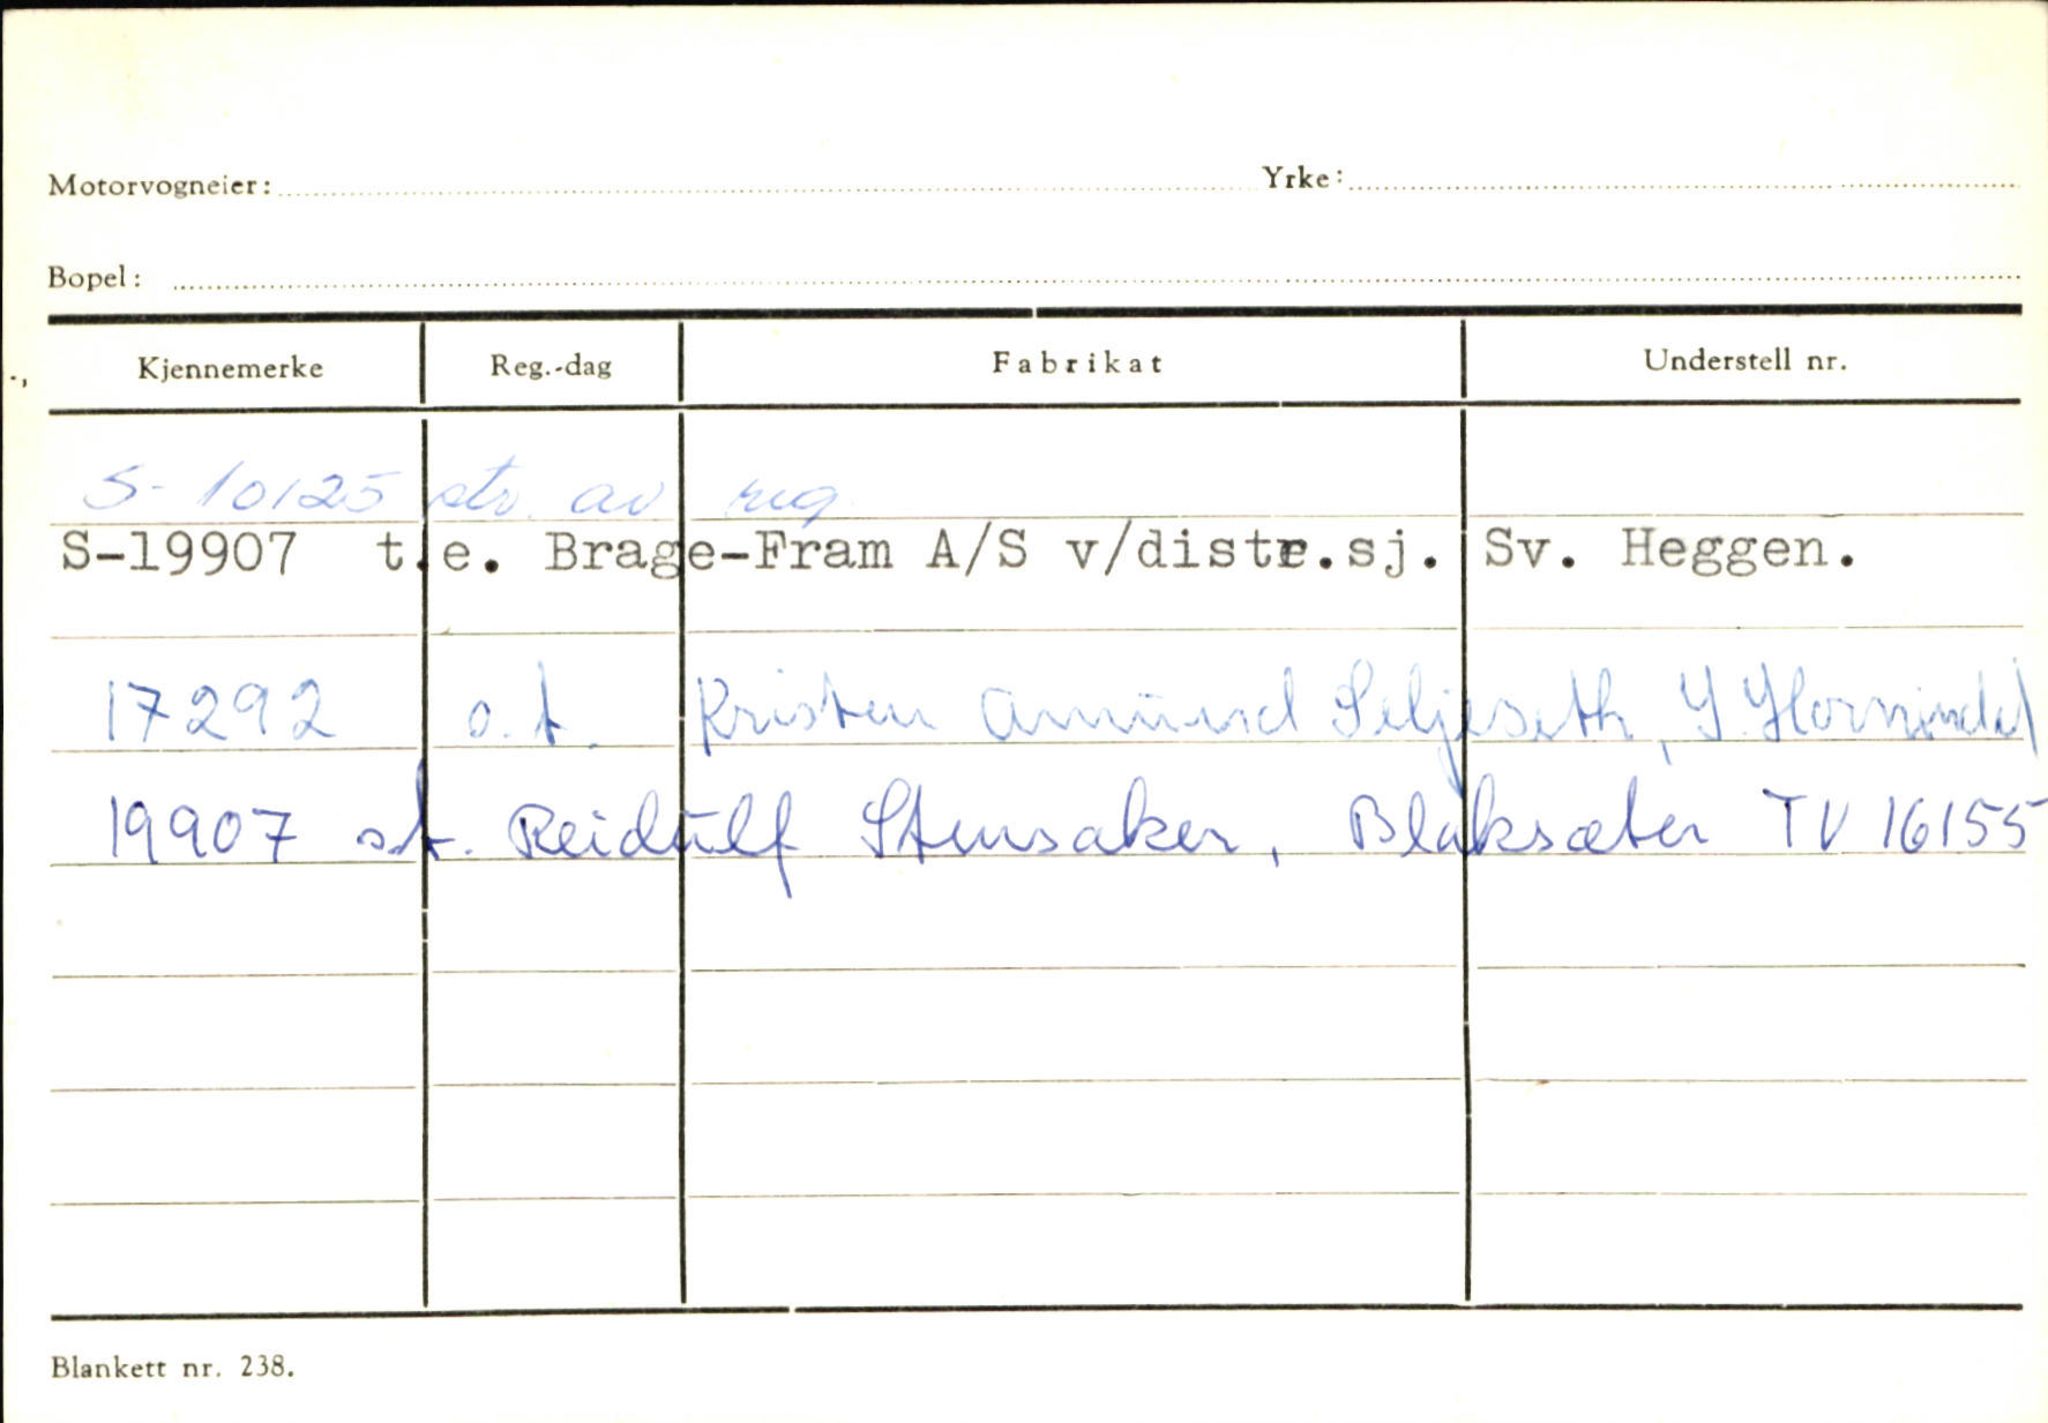 Motorvogneier: Yrke:
Bopel:
Kjennemerke Reg.-dag Fabrikat Understell nr.
S-10125 str. av reg
S-19907 t.e. Brage-Fram A/S v/distr.sj. Sv. Heggen.
17292 o.t. Kristen Amund Seljeseth, Y. Hornindal
19907 st. Reidulf Stensaker, Blaksæter TV 16155
Blankett nr. 238.